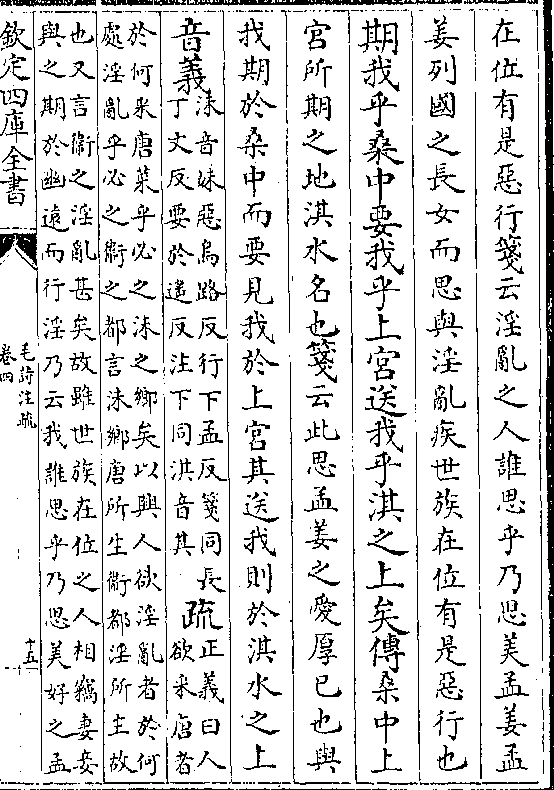 在位有是惡行箋云淫亂之人誰思乎乃思美孟姜孟
姜列國之長女而思與淫亂疾世族在位有是惡行也
期我乎桑中要我乎上宮送我乎淇之上矣傳桑中上
宮所期之地淇水名也箋云此思孟姜之愛厚已也與
我期於桑中而要見我於上宮其送我則於淇水之上
音義
沬音妹惡烏路反行下孟反箋同長
丁丈反要於遙反注下同淇音其
疏
正義曰人
欲采唐者
於何采唐菜乎必之沬之鄉矣以興人欲淫亂者於何
處淫亂乎必之衞之都言沬鄉唐所生衞都淫所主故
也又言衞之淫亂甚矣故雖世族在位之人相竊妻妾
與之期於幽遠而行淫乃云我誰思乎乃思美好之孟
欽定四庫全書
毛詩注疏
卷四
十五